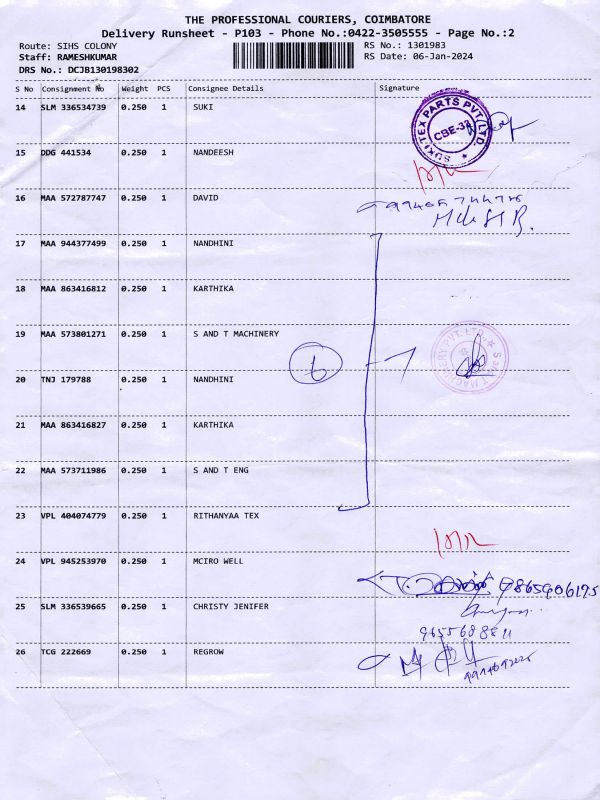 THE PROFESSIONAL COURIERS, COIMBATORE
Delivery Runsheet - P103 - Phone No.:0422-3505555 - Page No.:2
Route: SIHS COLONY RS No.: 1301983
Staff: RAMESHKUMAR RS Date: 06-Jan-2024
DRS No.: DCJB130198302
S No Consignment No Weight PCS Consignee Details Signature
14 SLM 336534739 0.250 1 SUKI
SUKI TEX PARTS PVT LTD. CBE-33
15 DDG 441534 0.250 1 NANDEESH
16 MAA 572787747 0.250 1 DAVID
17 MAA 944377499 0.250 1 NANDHINI
18 MAA 863416812 0.250 1 KARTHIKA
19 MAA 573801271 0.250 1 S AND T MACHINERY
S AND T MACHINERY PVT. LTD.
6
20 TNJ 179788 0.250 1 NANDHINI
21 MAA 863416827 0.250 1 KARTHIKA
22 MAA 573711986 0.250 1 S AND T ENG
23 VPL 404074779 0.250 1 RITHANYAA TEX
24 VPL 945253970 0.250 1 MCIRO WELL
9865906195
25 SLM 336539665 0.250 1 CHRISTY JENIFER
9655688811
26 TCG 222669 0.250 1 REGROW